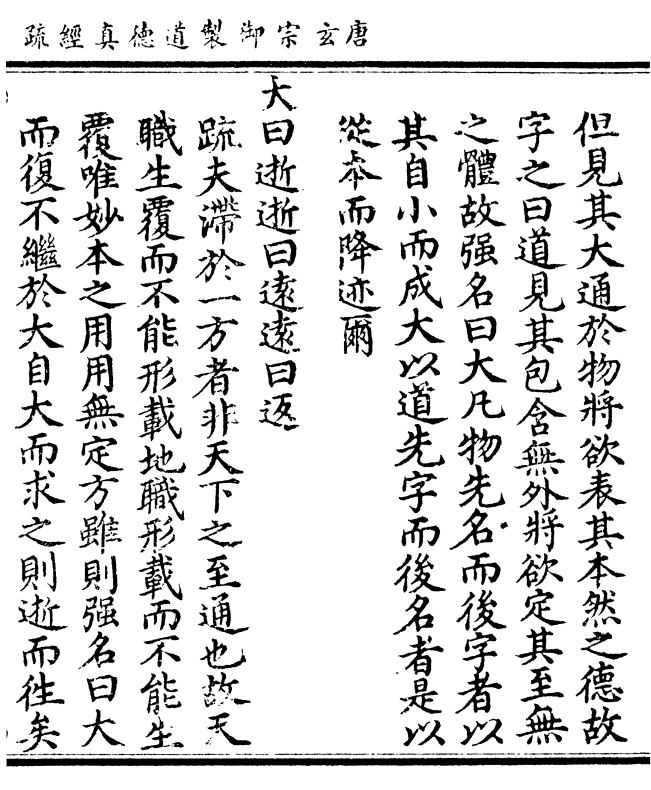 唐玄宗御製道德真經疏
但見其大通於物將欲表其本然之德故
字之曰道見其包含無外將欲定其至無
之體故强名曰大凡物先名而後字者以
其自小而成大以道先字而後名者是以
從本而降迹爾
大曰逝逝曰遠遠曰返
疏夫滯於一方者非天下之至通也故天
職生覆而不能形載地職形載而不能生
覆唯妙本之用用無定方雖則强名曰大
而復不繼於大自大而求之則逝而徃矣